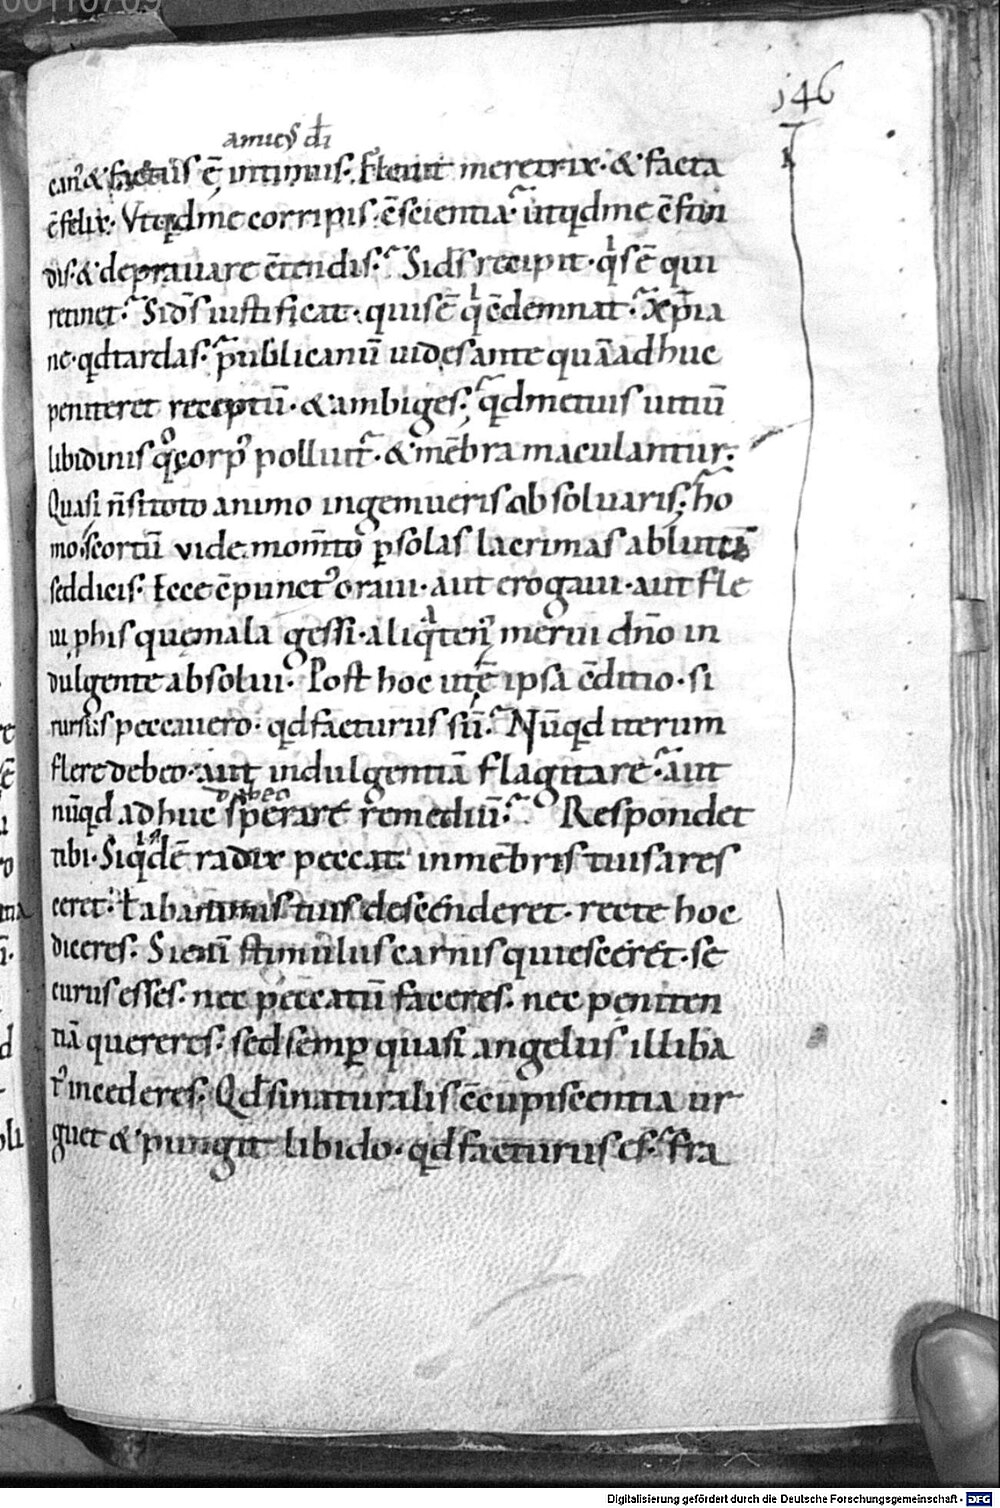 146
amicus di
can' & factus ē intimus. Fleuit meretrix. & facta
ē felix. Vt quid me corripis. ē scientia. ut quid me ēfun
dis. & deprauare ētendis. Si ds recipit. quis ē qui
retinet. Si ds iustificat. quis ē qui ēdemnat. xp̄ia
ne. qd tardas. publicanū uides ante quā adhuc
peniteret receptū. & ambiges. qd metuis uitiū
libidinis quo corp' polluit'. & mēbra maculantur.
Quasi n̄ si toto animo ingemueris absoluaris. ho
mo. scortū vide. mom̄to p solas lacrimas ablutū
sed dicis. Ecce cōpunct' oraui. aut erogaui. aut fle
ui p his que mala gessi. aliqaten' merui dn̄o in
dulgente absolui. Post hoc utē ipsa ēditio. si
rursus peccauero. qd facturus sū. Nūqd iterum
flere debeo. aut indulgentiā flagitare. aut
nūqd adhuc sperare debeo remediū. Respondet
tibi. Siqdē radix peccati in mēbris tuis ares
ceret. t ab animis tuis descenderet. recte hoc
diceres. Si enī stimulus carnis quiesceret. se
curus esses. nec peccatū faceres. nec peniten
tiā quereres. sed semp quasi angelus illiba
t' incederes. Qd si naturalis ēcupiscentia ur
guet & pungit libido. qd facturus es. fra
Digitalisierung gefördert durch die Deutsche Forschungsgemeinschaft - DFG